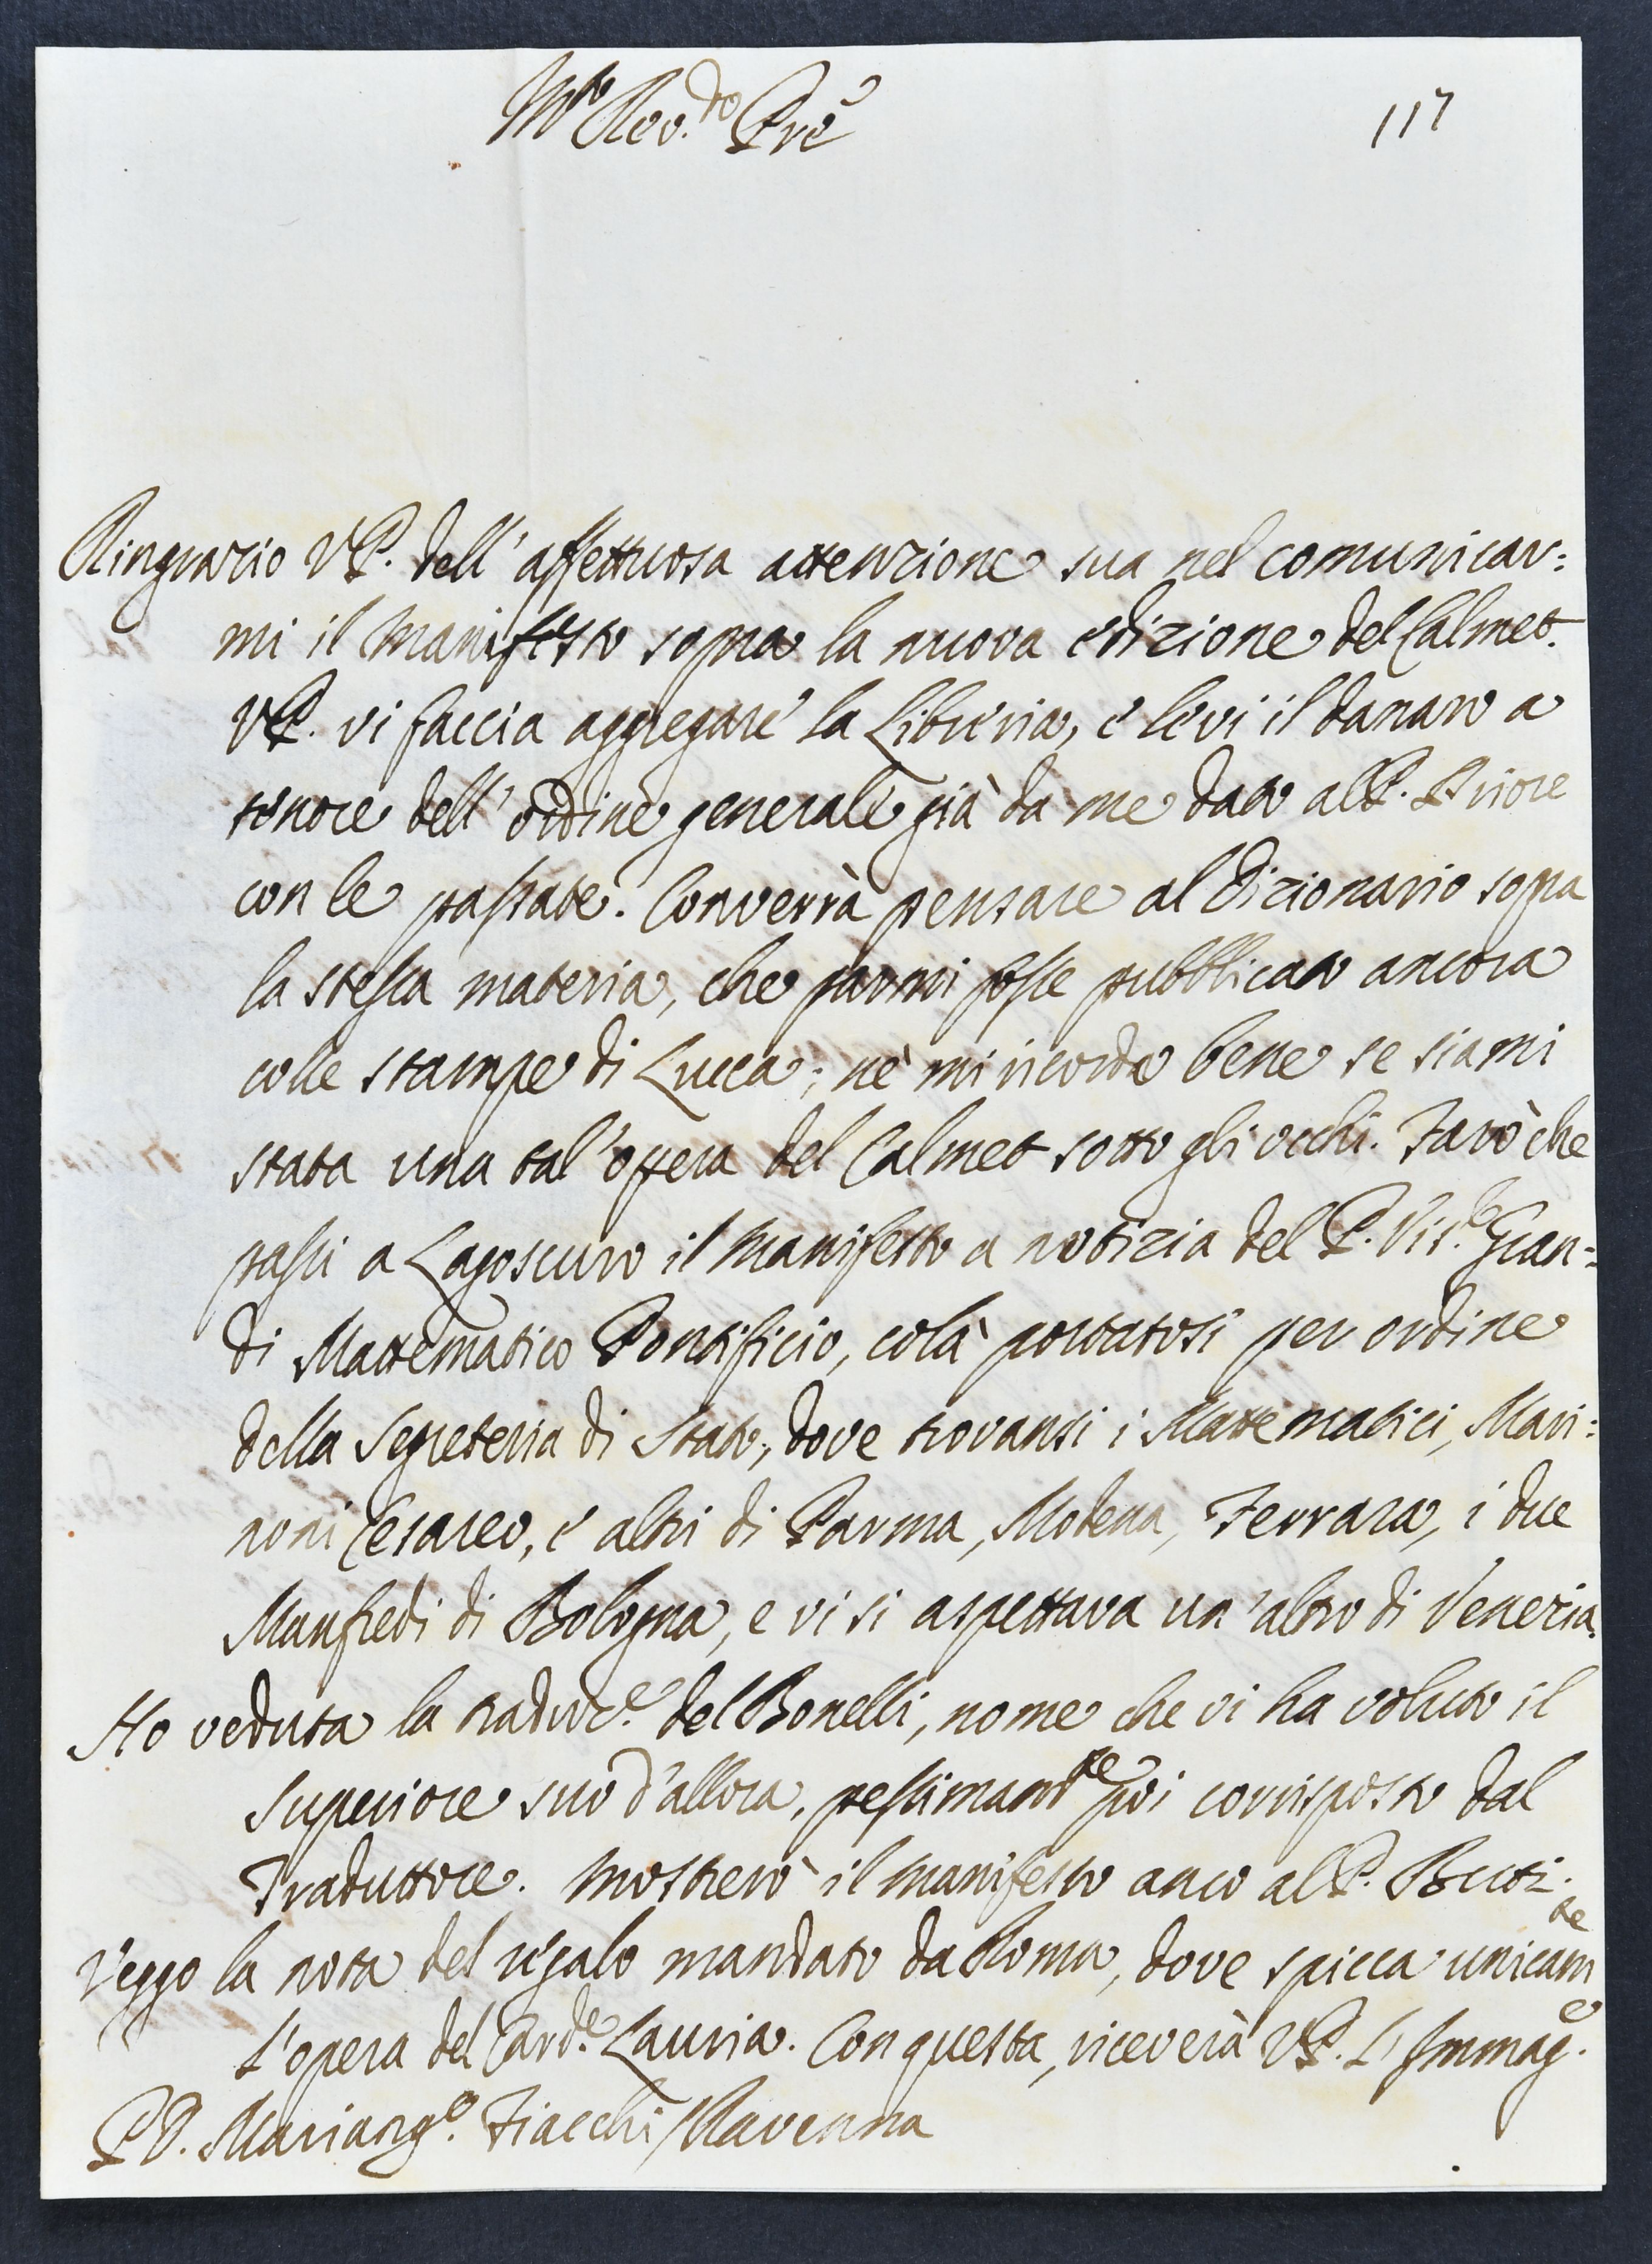 M.to Rev.do Pre
117
Ringrazio V.P. dell'affettuosa attenzione sua nel comunicar=
mi il Manifesto sopra la nuova edizione del Calmet.
V.P. vi faccia aggregare la Libreria, e levi il danaro a
tenore dell'ordine generale già da me dato al P. Priore
con le passate. Converrà pensare al Dizionario sopra
la stessa materia, che parmi fosse pubblicato ancora
colle stampe di Lucca; nè mi ricordo bene se siami
stata una tal'opera del Calmet sotto gli occhi. Farò che
passi a Lagoscuro il Manifesto a notizia del P. Vis.e Gran=
di Mattematico Pontificio, colà portatosi per ordine
della Segreteria di Stato, dove trovansi i Mattematici, Mari=
noni Cesareo, e altri di Parma, Modena, Ferrara, i due
Manfredi di Bologna, e vi si aspettava un'altro di Venezia.
Ho veduta la traduz.e del Bonelli, nome che vi ha voluto il
Superiore suo d'allora, pessimam.te poi corrisposto dal
Traduttore. Mostrerò il Manifesto anco al P.
Veggo la nota del regalo mandato da Roma, dove spicca unicam.te
l'opera del Card.e Lauria. Con questa, riceverà V.P. l'Immag.e
P.D. Mariang.o Fiacchi / Ravenna